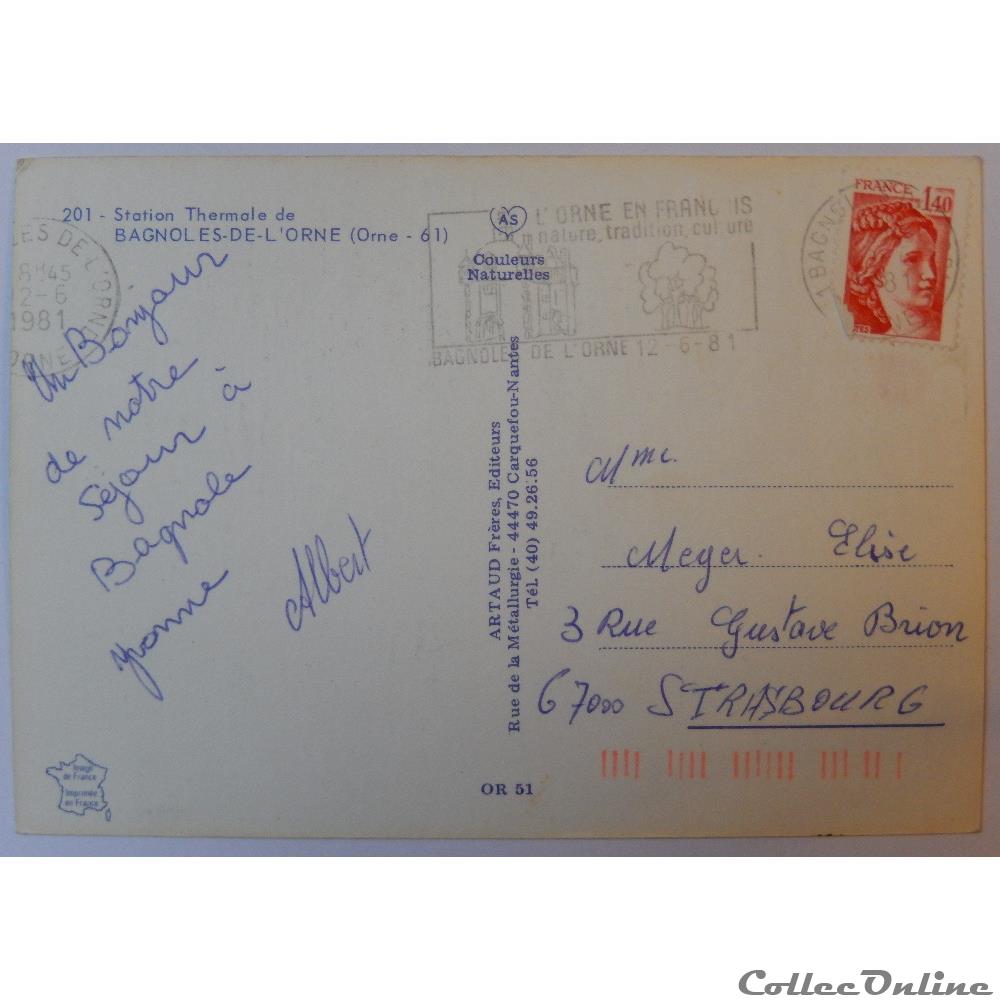 201 - Station Thermale de
BAGNOLES-DE-L'ORNE (Orne - 61)
AS
Couleurs
Naturelles
LES DE L'ORNE
8H45
12-6
1981
ORNE
L'ORNE EN FRANÇAIS
nature, tradition, culture
BAGNOLES DE L'ORNE 12-6-81
FRANCE
1,40
BAGNOL
18
Un Bonjour
de notre
Séjour à
Bagnole
Yvonne
Albert
ARTAUD Frères, Editeurs
Rue de la Métallurgie - 44470 Carquefou-Nantes
Tél. (40) 49.26.56
Mme.
Meyer. Elise
3 Rue Gustave Brion
67000 STRASBOURG
Image
de France
Imprimée
en France
OR 51
CollecOnline